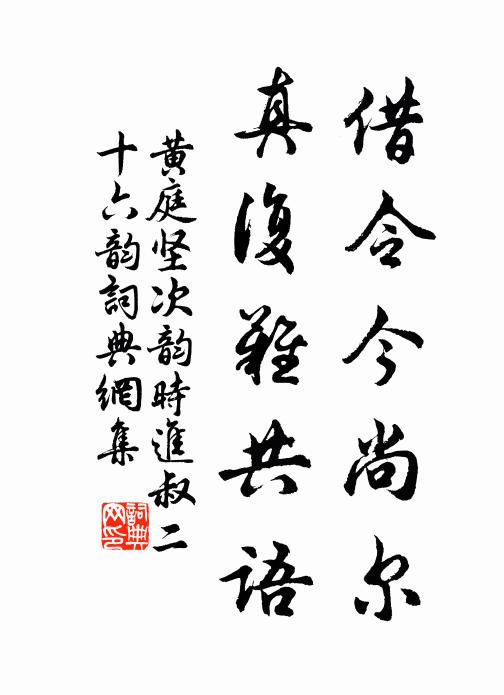 借令今尚尔
真復難共语
黄庭坚次韵時進叔二
十六韵詞典網集
詞典
网印